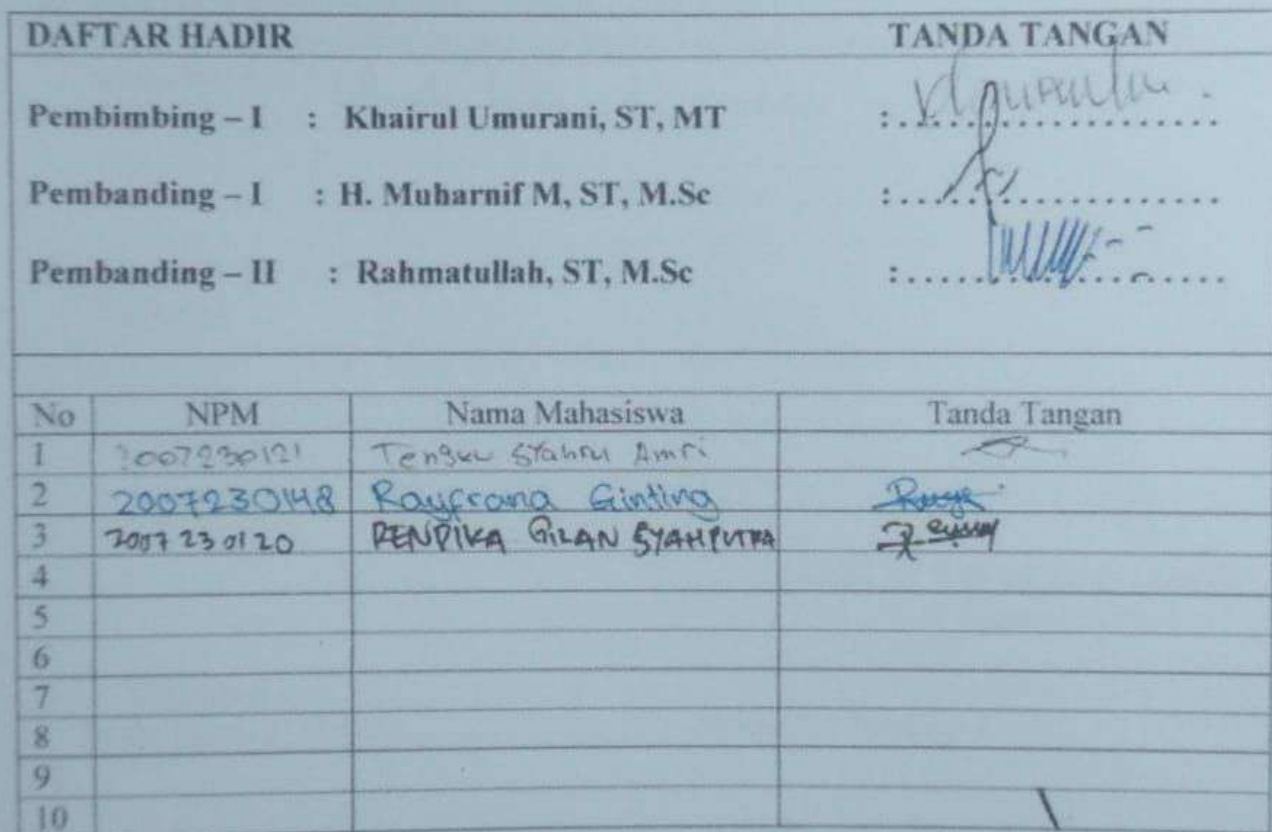 DAFTAR HADIR TANDA TANGAN
Pembimbing – I : Khairul Umurani, ST, MT :....................
Pembanding – I : H. Muharnif M, ST, M.Sc :....................
Pembanding – II : Rahmatullah, ST, M.Sc :....................
No NPM Nama Mahasiswa Tanda Tangan
1 2007230121 Tengku Syahru Amri
2 2007230148 Rayfrana Ginting
3 2007230120 RENDIKA GILAN SYAHPUTRA
4
5
6
7
8
9
10